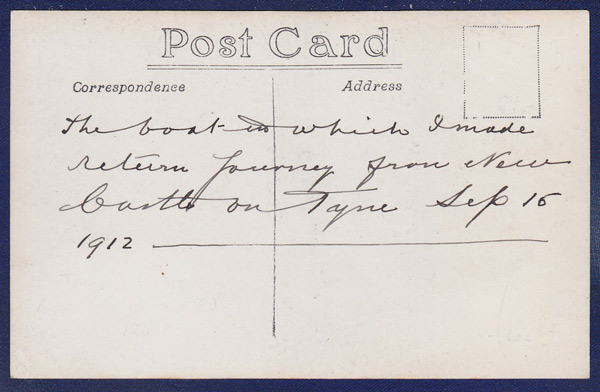 Post Card
Correspondence
Address
The boat in which I made
return Journey from New
Castle on Tyne Sep 15
1912